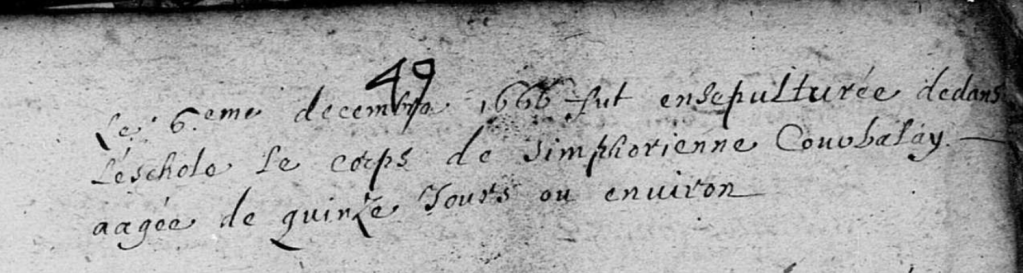 49
Le 6.eme decembre 1666 fut ensepulturée dedans
L'eschole le corps de Simphorienne Couubalay
aagée de quinze Jours ou enuiron